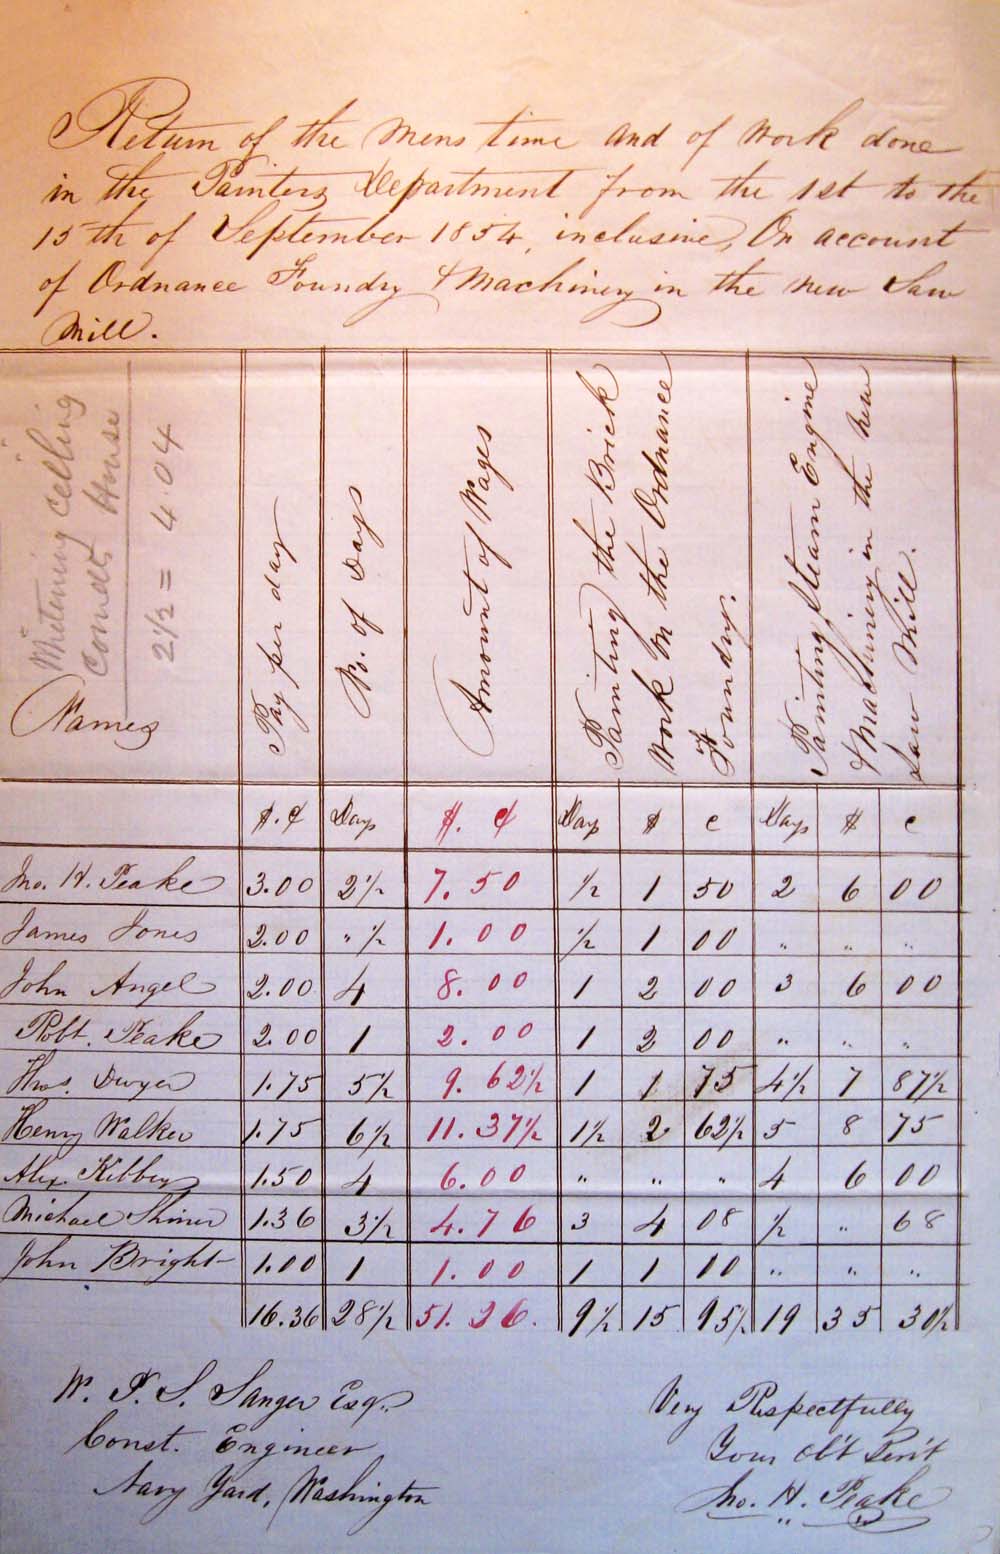 Return of the mens time and of work done
in the Painters Department from the 1st to the
15th of September 1854, inclusive, On account
of Ordnance Foundry & Machinery in the new Saw
Mill.
Whitening Ceiling
Comdts House
2 1/2 = 4.04
Names
Pay per day
No. of Days
Amount of Wages
Painting the Brick
work on the Ordnance
Foundry.
Painting Steam Engine
& Machinery in the new
Saw Mill.
$. ¢ Days $. ¢ Days $ c Days $ c
Jno. H. Peake 3.00 2 1/2 7.50 1/2 1 50 2 6 00
James Jones 2.00 " 1/2 1.00 1/2 1 00 " " "
John Angel 2.00 4 8.00 1 2 00 3 6 00
Robt. Peake 2.00 1 2.00 1 2 00 " " "
Thos. Dwyer 1.75 5 1/2 9.62 1/2 1 1 75 4 1/2 7 87 1/2
Henry Walker 1.75 6 1/2 11.37 1/2 1 1/2 2 62 1/2 5 8 75
Alex. Kibbey 1.50 4 6.00 " " " 4 6 00
Michael Shiner 1.36 3 1/2 4.76 3 4 08 1/2 " 68
John Bright 1.00 1 1.00 1 1 00 " " "
16.36 28 1/2 51.26. 9 1/2 15 95 1/2 19 35 30 1/2
W. P. S. Sanger Esq.
Const. Engineer
Navy Yard, Washington
Very Respectfully
Your Obt Servt
Jno. H. Peake